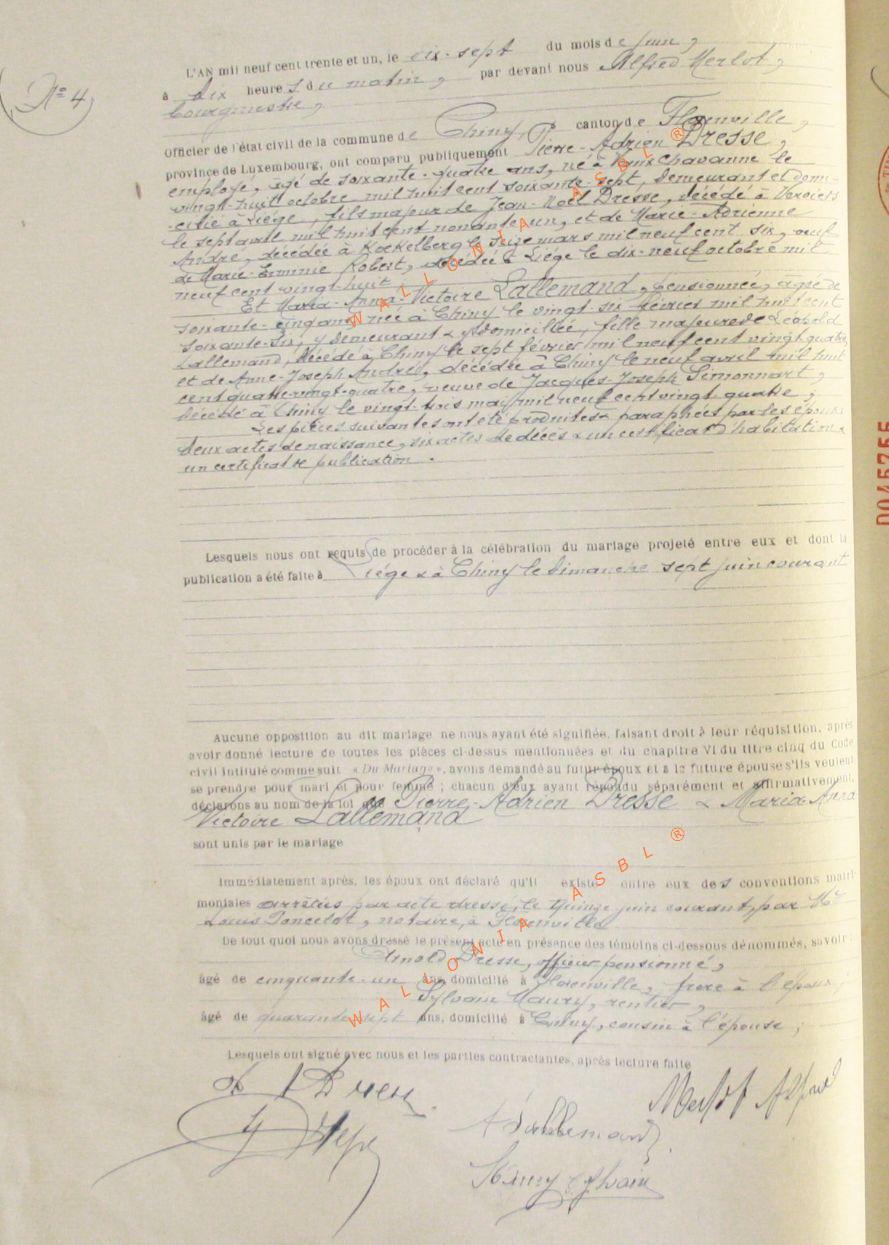 L'AN mil neuf cent trente et un, le dix-sept du mois de juin,
N° 4
à dix heures du matin, par devant nous Alfred Merlot,
bourgmestre,
Officier de l'état civil de la commune de Chiny, canton de Florenville,
province de Luxembourg, ont comparu publiquement Pierre-Adrien Dresse,
employé, âgé de soixante-quatre ans, né à chavanne le
vingt-huit octobre mil huit cent soixante-sept, demeurant et domi-
cilié à Liège, fils majeur de Jean-Noël Dresse, décédé à Verviers
le sept août mil huit cent nonante-un, et de Marie-Adrienne
André, décédée à Koekelberg le seize mars mil neuf cent six, veuf
de Marie Erminie Robert, décédée à Liège le dix-neuf octobre mil
neuf cent vingt-huit
Et Maria-Anna-Victoire Lallemand, pensionnée, âgée de
soixante-cinq ans, née à Chiny le vingt-six février mil huit cent
soixante-six, y demeurant & domiciliée, fille majeure de Léopold
Lallemand, décédé à Chiny le sept février mil neuf cent vingt quatre,
et de Anne-Joseph André, décédée à Chiny le neuf avril mil huit
cent quatre-vingt-quatre, veuve de Jacques-Joseph Simonnart,
décédé à Chiny le vingt-trois mai mil neuf cent vingt quatre,
Les pièces suivantes ont été produites & paraphées par les époux
deux actes de naissance, six actes de décès & un certificat d'habitation &
un certificat de publication.
Lesquels nous ont requis de procéder à la célébration du mariage projeté entre eux et dont la
publication a été faite à Liége & à Chiny le dimanche sept juin courant
Aucune opposition au dit mariage ne nous ayant été signifiée, faisant droit à leur réquisition, après
avoir donné lecture de toutes les pièces ci-dessus mentionnées et du chapitre VI du titre cinq du Code
civil intitulé comme suit « Du Mariage », avons demandé au futur époux et à la future épouse s'ils veulent
se prendre pour mari et pour femme ; chacun d'eux ayant répondu séparément et affirmativement,
déclarons au nom de la loi que Pierre-Adrien Dresse & Maria-Anna
Victoire Lallemand
sont unis par le mariage
Immédiatement après, les époux ont déclaré qu'il existe entre eux des conventions matri-
moniales arrêtées par acte dressé, le quinze juin courant, par Me
Louis Poncelot, notaire, à Florenville
De tout quoi nous avons dressé le présent acte en présence des témoins ci-dessous dénommés, savoir :
Arnold Dresse, officier pensionné,
âgé de cinquante-un ans, domicilié à Florenville, frère à l'époux,
Sylvain Maury, rentier,
âgé de quarante sept ans, domicilié à Chiny, cousin à l'épouse,
Lesquels ont signé avec nous et les parties contractantes, après lecture faite
Dresse
Merlot Alfred
A Lallemand
Sylvain
D045755
WALLONIA ASBL ®
WALLONIA ASBL ®